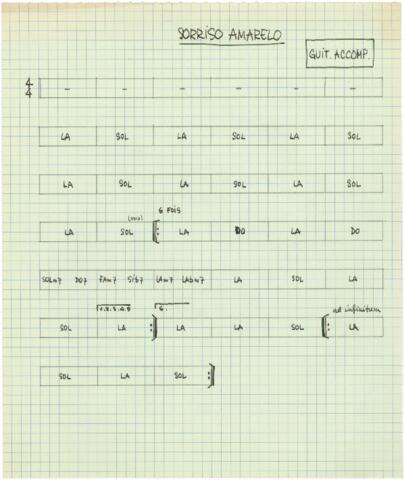 SORRISO AMARELO
GUIT. ACCOMP.
4
4
- - - - - -
LA SOL LA SOL LA SOL
LA SOL LA SOL LA SOL
6 FOIS
LA SOL LA DO LA DO
SOLm7 DO7 FAm7 SIb7 LAm7 LAbm7 LA SOL LA
1.2.3.4.5 6. ad infinitum
SOL LA LA LA SOL LA
SOL LA SOL